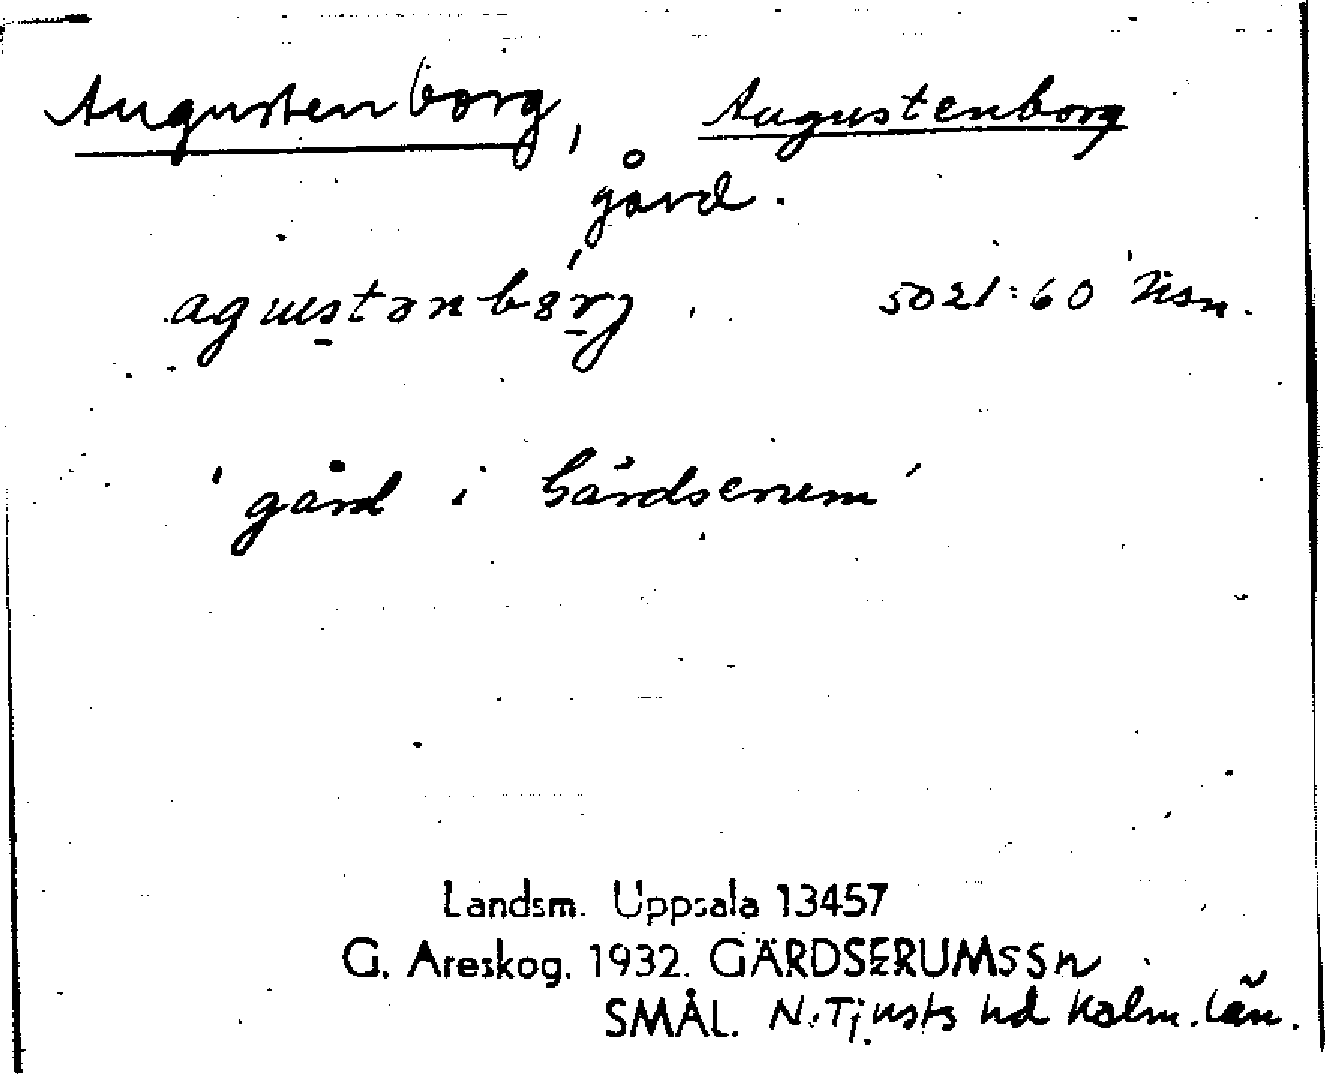 Augustenborg, Augustenborg
gård.
agustanbärj. 5021:60
'gård i Gärdserum'
Landsm. Uppsala 13457
G. Areskog. 1932. GÄRDSERUMS SN
SMÅL. N. Tjusts hd Kalm. län.